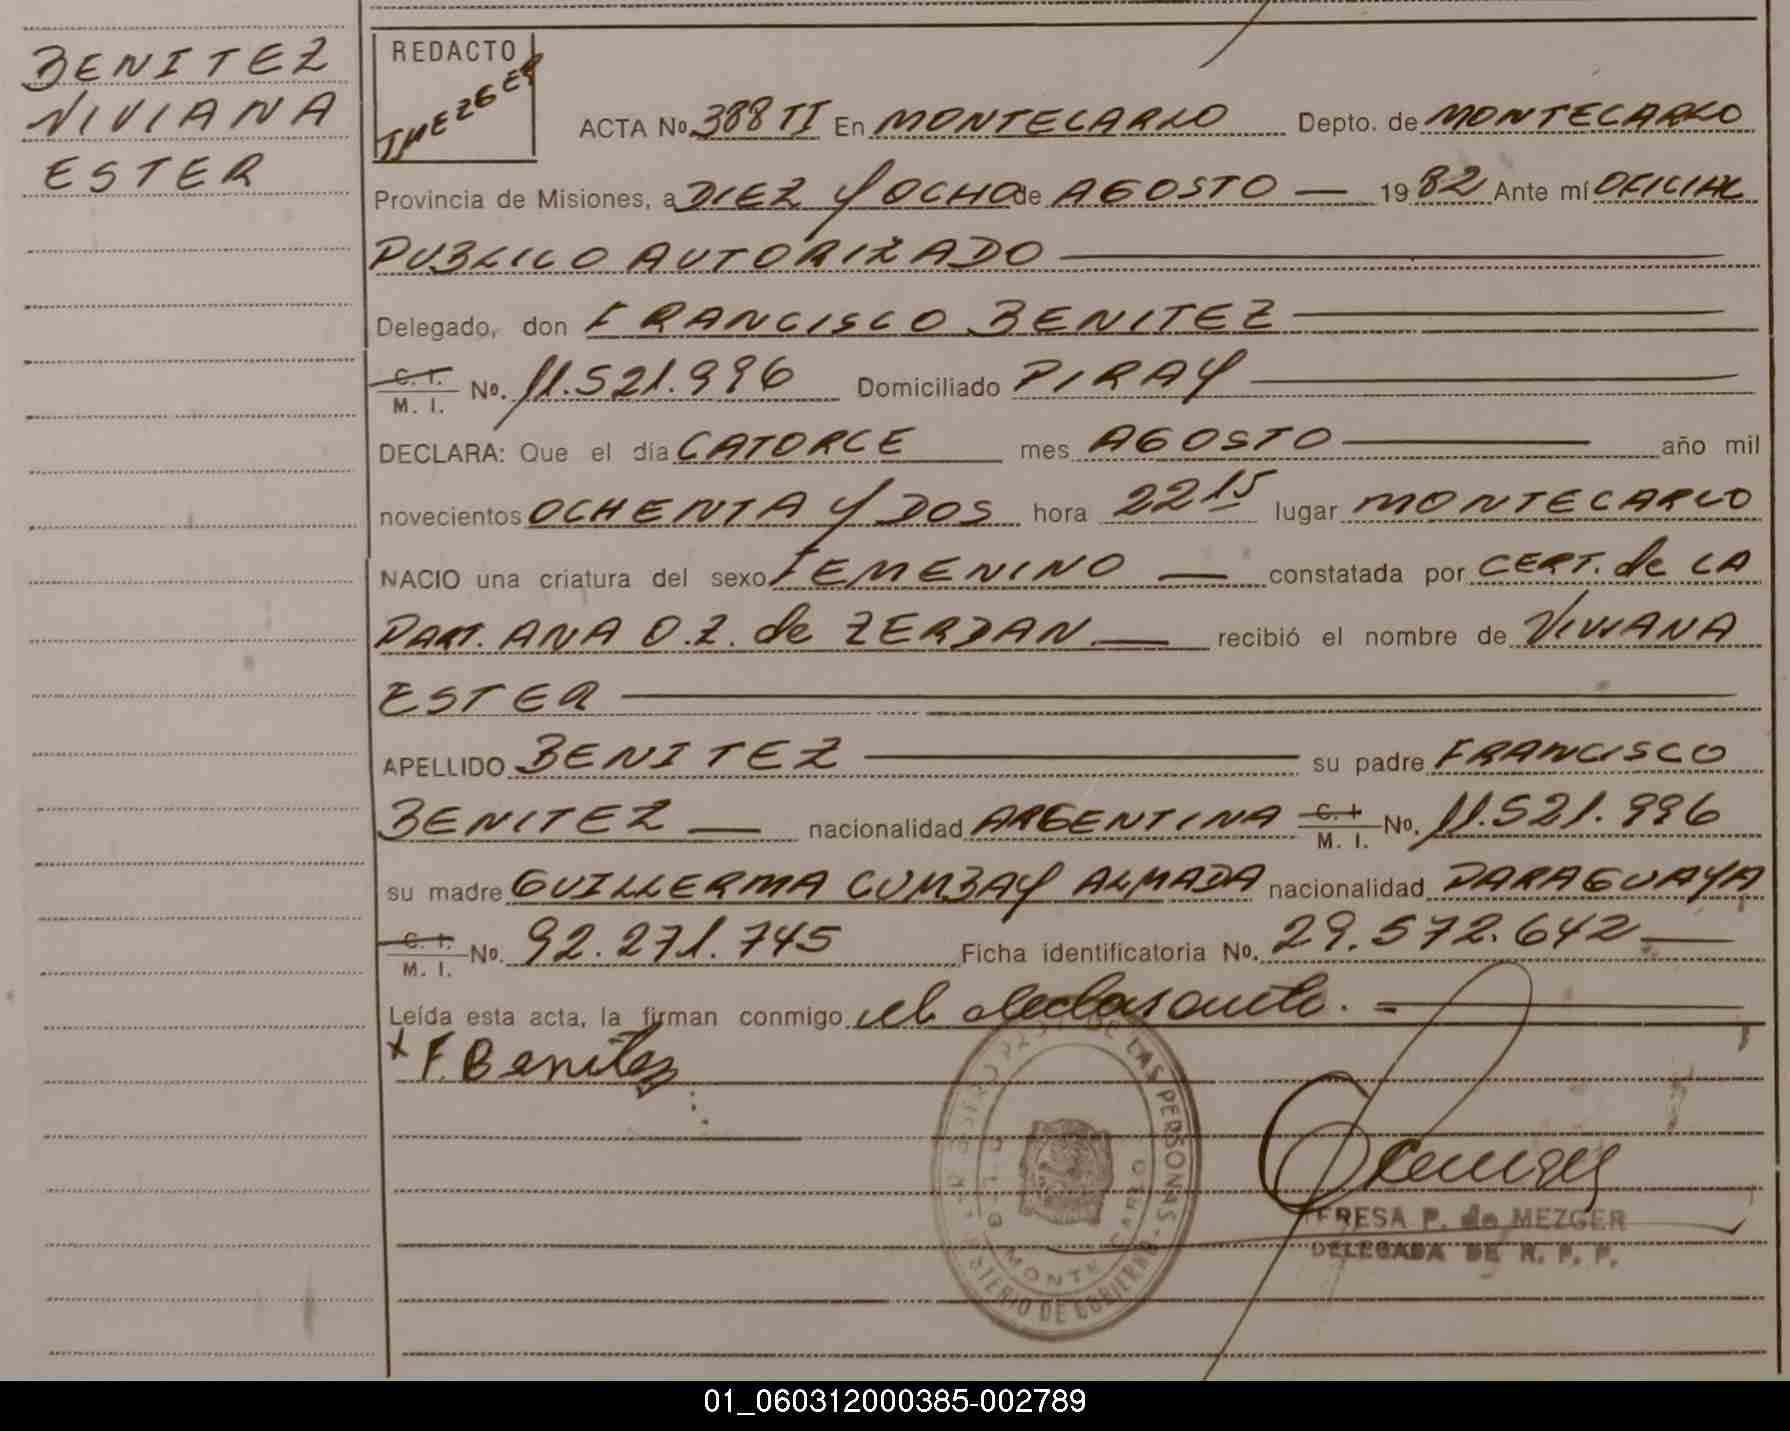 BENITEZ
VIVIANA
ESTER
REDACTO
TMEZGER
ACTA No. 388 II En MONTECARLO Depto. de MONTECARLO
Provincia de Misiones, a DIEZ Y OCHO de AGOSTO — 1982 Ante mí OFICIAL
PUBLICO AUTORIZADO
Delegado, don FRANCISCO BENITEZ
C. I. M. I. No. 11.521.996 Domiciliado PIRAY
DECLARA: Que el día CATORCE mes AGOSTO año mil
novecientos OCHENTA Y DOS hora 22 15 lugar MONTECARLO
NACIO una criatura del sexo FEMENINO — constatada por CERT. de LA
PART. ANA O.Z. de ZERDAN — recibió el nombre de VIVIANA
ESTER
APELLIDO BENITEZ su padre FRANCISCO
BENITEZ — nacionalidad ARGENTINA C. I. M. I. No. 11.521.996
su madre GUILLERMA CUMBAY ALMADA nacionalidad PARAGUAYA
C. I. M. I. No. 92.271.745 Ficha identificatoria No. 29.572.642
Leída esta acta, la firman conmigo el declarante.
x F. Benitez
DE LAS PERSONAS
MONTE CARLO
MINISTERIO DE GOBIERNO
TERESA P. de MEZGER
DELEGADA DE R. P. P.
01_060312000385-002789